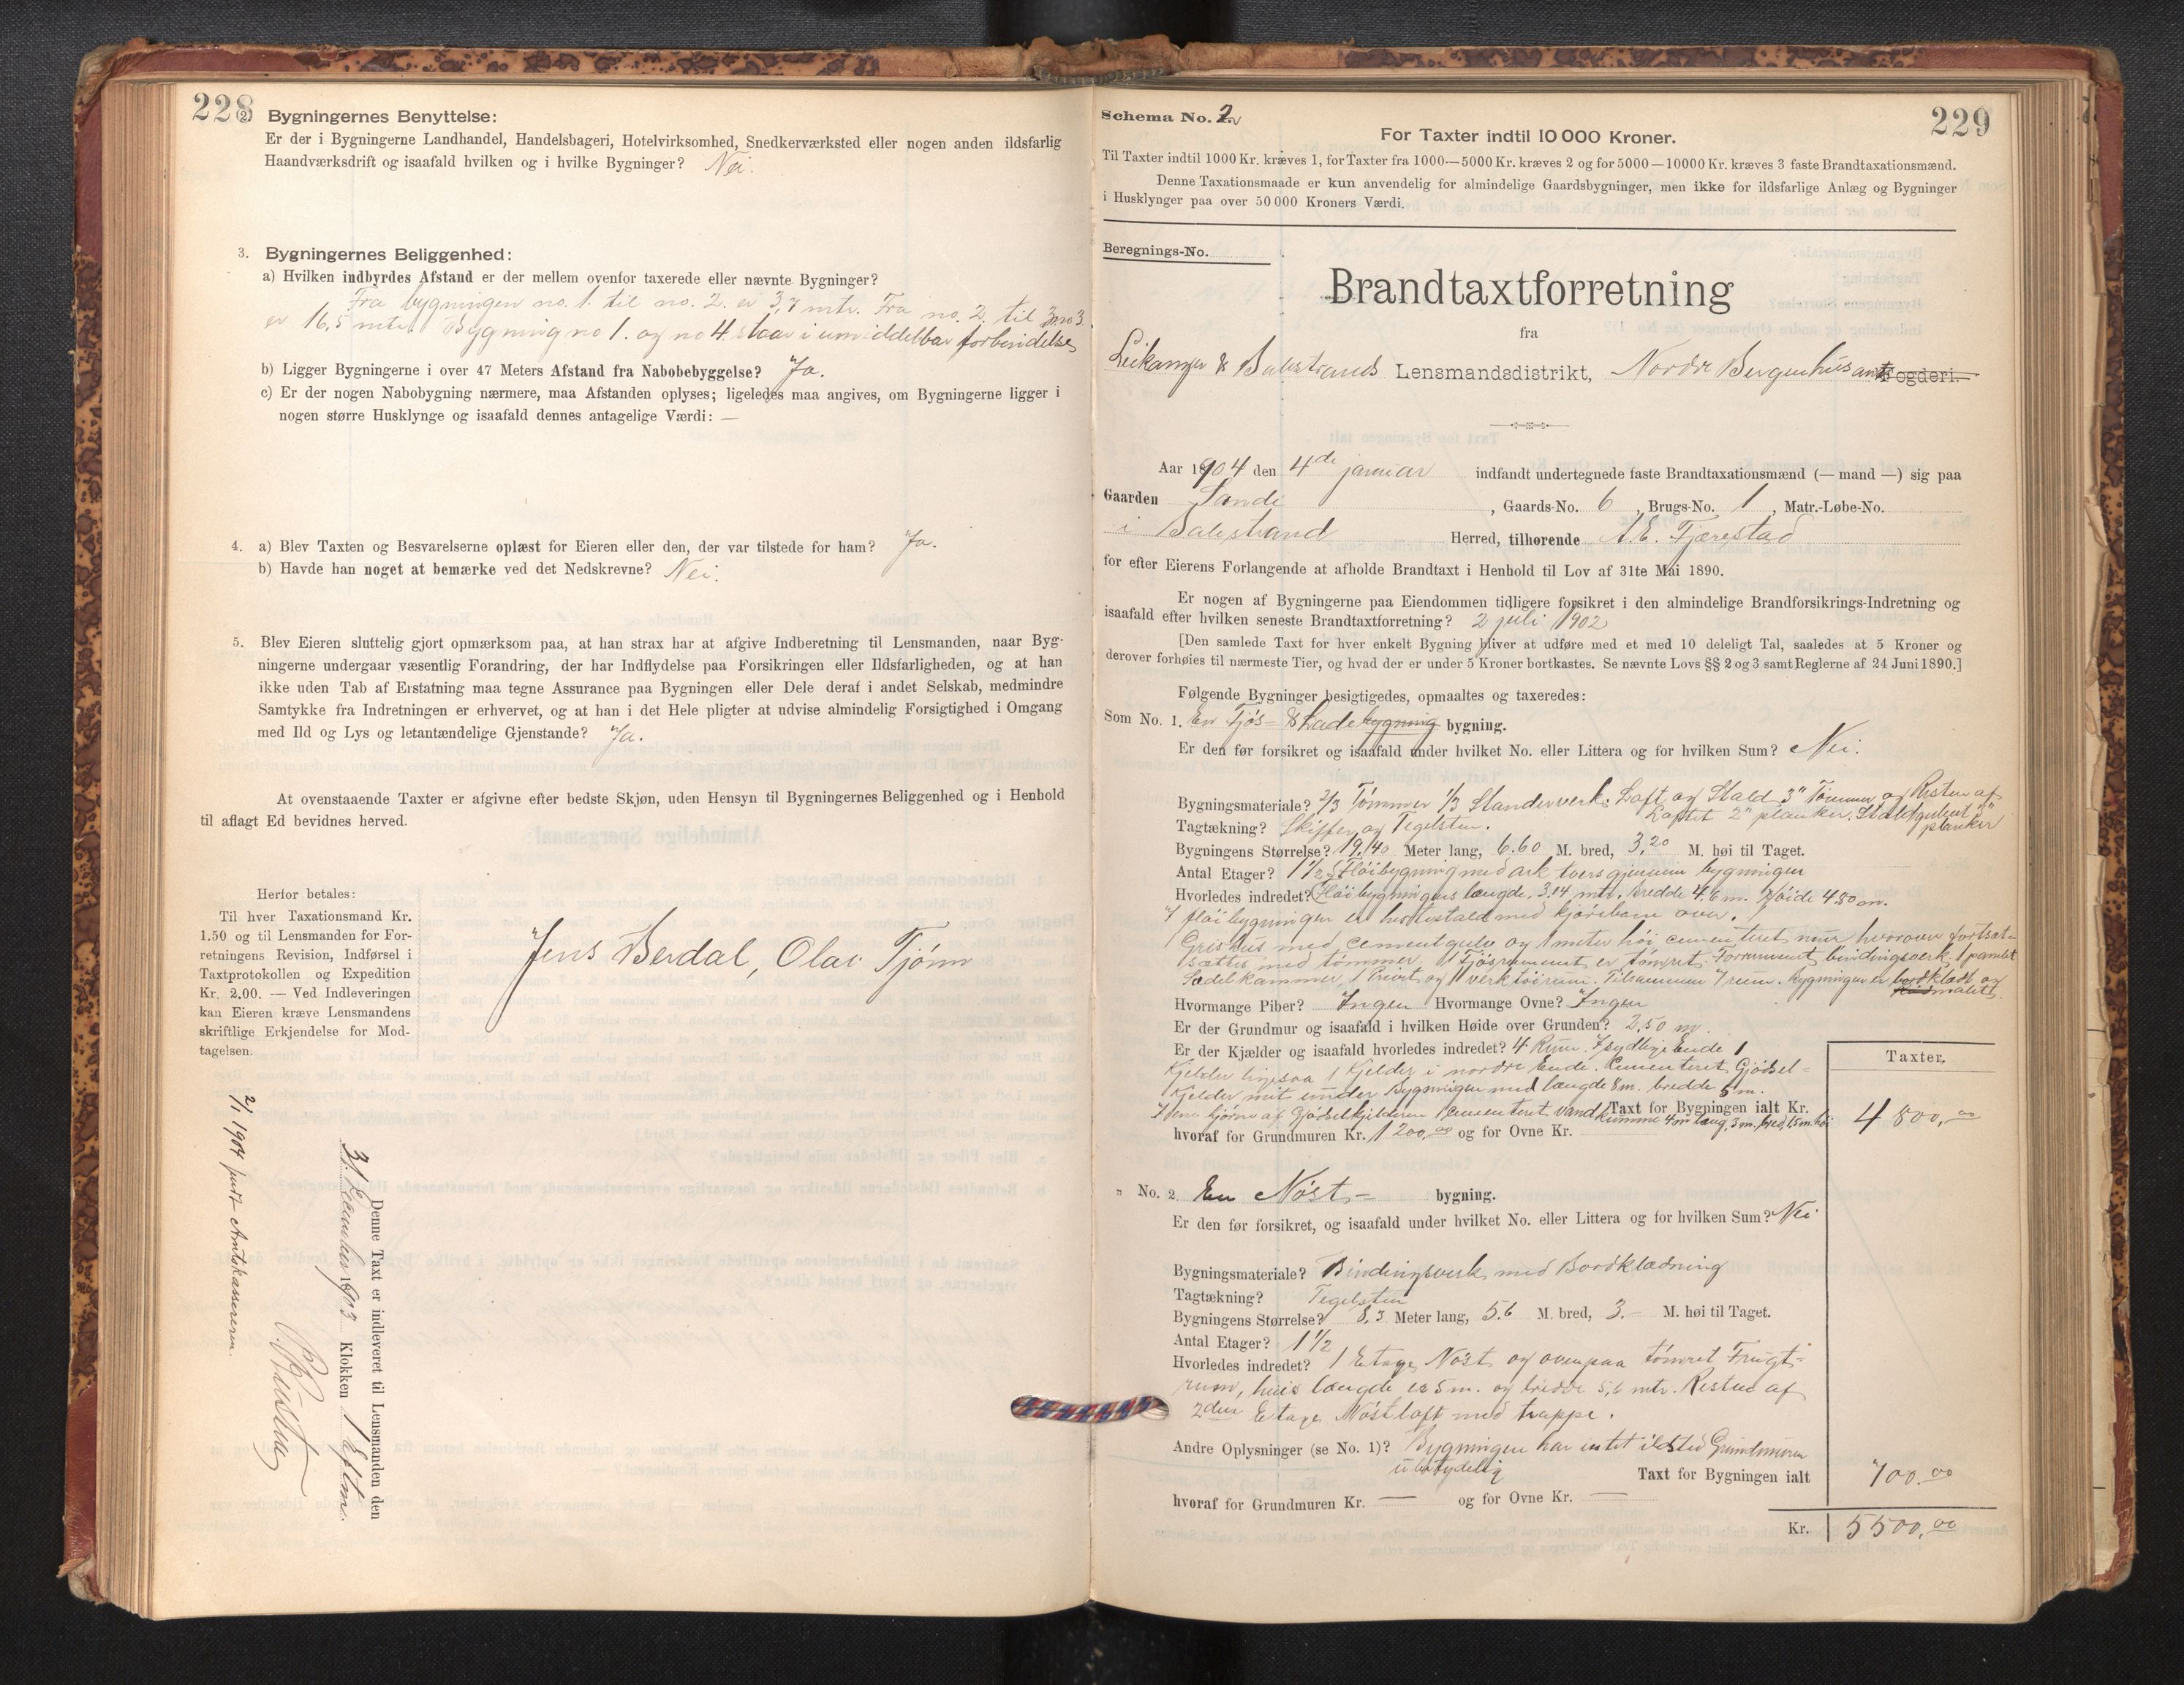 228
2) Bygningernes Benyttelse:
Er der i Bygningerne Landhandel, Handelsbageri, Hotelvirksomhed, Snedkerværksted eller nogen anden ildsfarlig
Haandværksdrift og isaafald hvilken og i hvilke Bygninger? Nei.
3. Bygningernes Beliggenhed:
a) Hvilken indbyrdes Afstand er der mellem ovenfor taxerede eller nævnte Bygninger?
Fra bygningen no. 1. til no. 2. er 3,7 mtr. Fra no. 2. til no 3
er 16,5 mtr. Bygning no 1. og no 4 staar i umiddelbar forbindelse
b) Ligger Bygningerne i over 47 Meters Afstand fra Nabobebyggelse? Ja.
c) Er der nogen Nabobygning nærmere, maa Afstanden oplyses; ligeledes maa angives, om Bygningerne ligger i
nogen større Husklynge og isaafald dennes antagelige Værdi: —
4. a) Blev Taxten og Besvarelserne oplæst for Eieren eller den, der var tilstede for ham? Ja.
b) Havde han noget at bemærke ved det Nedskrevne? Nei.
5. Blev Eieren sluttelig gjort opmærksom paa, at han strax har at afgive Indberetning til Lensmanden, naar Byg-
ningerne undergaar væsentlig Forandring, der har Indflydelse paa Forsikringen eller Ildsfarligheden, og at han
ikke uden Tab af Erstatning maa tegne Assurance paa Bygningen eller Dele deraf i andet Selskab, medmindre
Samtykke fra Indretningen er erhvervet, og at han i det Hele pligter at udvise almindelig Forsigtighed i Omgang
med Ild og Lys og letantændelige Gjenstande? Ja.
At ovenstaaende Taxter er afgivne efter bedste Skjøn, uden Hensyn til Bygningernes Beliggenhed og i Henhold
til aflagt Ed bevidnes herved.
Herfor betales:
Til hver Taxationsmand Kr.
1.50 og til Lensmanden for For-
retningens Revision, Indførsel i
Taxtprotokollen og Expedition
Kr. 2.00. — Ved Indleveringen
kan Eieren kræve Lensmandens
skriftlige Erkjendelse for Mod-
tagelsen.
Jens Berdal, Olai Tjønn
Denne Taxt er indleveret til Lensmanden den
31 1903 Klokken 1 Eftm.
2/1 1904 sendt Amtskassereren.
229
Schema No. 2
For Taxter indtil 10 000 Kroner.
Til Taxter indtil 1000 Kr. kræves 1, for Taxter fra 1000—5000 Kr. kræves 2 og for 5000—10000 Kr. kræves 3 faste Brandtaxationsmænd.
Denne Taxationsmaade er kun anvendelig for almindelige Gaardsbygninger, men ikke for ildsfarlige Anlæg og Bygninger
i Husklynger paa over 50 000 Kroners Værdi.
Beregnings-No.
Brandtaxtforretning
fra
Leikanger & Balestrands Lensmandsdistrikt, Nordre Bergenhus amts Fogderi.
Aar 1904 den 4de januar indfandt undertegnede faste Brandtaxationsmænd (— mand —) sig paa
Gaarden Sande , Gaards-No. 6 , Brugs-No. 1 , Matr.-Løbe-No.
i Balestrand Herred, tilhørende A. E. Fjærestad
for efter Eierens Forlangende at afholde Brandtaxt i Henhold til Lov af 31te Mai 1890.
Er nogen af Bygningerne paa Eiendommen tidligere forsikret i den almindelige Brandforsikrings-Indretning og
isaafald efter hvilken seneste Brandtaxtforretning? 2 juli 1902
[Den samlede Taxt for hver enkelt Bygning bliver at udføre med et med 10 deleligt Tal, saaledes at 5 Kroner og
derover forhøies til nærmeste Tier, og hvad der er under 5 Kroner bortkastes. Se nævnte Lovs §§ 2 og 3 samt Reglerne af 24 Juni 1890.]
Følgende Bygninger besigtigedes, opmaaltes og taxeredes:
Som No. 1. En Fjøs- & Ladebygning bygning.
Er den før forsikret og isaafald under hvilket No. eller Littera og for hvilken Sum? Nei.
Bygningsmateriale? 2/3 Tømmer 1/3 Standerverk. Loft og Stald 3" Tømmer og Resten af
Loftet 2" planker. Staldgulvet planker
Tagtækning? Skiffer og Tegelsten.
Bygningens Størrelse? 19,40 Meter lang, 6.60 M. bred, 3,20 M. høi til Taget.
Antal Etager? 1 1/2. Fløibygning med ark tvers gjennem bygningen
Hvorledes indredet? Fløibygningens længde 3.14 mtr. bredde 4.6 m. høide 4.80 m.
I fløibygningen er hestestald med kjørebane over.
1 Grishus med cementgulv og 1 meter høi cementeret mur hvorover fortsat-
sættes med tømmer. 1 Fjøsrummet er tømret. Forrummet bindingsverk
Sædelkammer, 1 Privet og 1 verktøirum. Tilsammen 7 rum. Bygningen er bordklædt og malet.
Hvormange Piber? Ingen Hvormange Ovne? Ingen
Er der Grundmur og isaafald i hvilken Høide over Grunden? 2,50 m.
Er der Kjælder og isaafald hvorledes indredet? 4 Rum. I sydlige Ende 1
Kjelder ligesaa 1 Kjelder i nordre Ende. Cementeret Gjødsel-
kjelder mit under Bygningen med længde 8 m. bredde 5 m.
I ene hjørne af Gjødselkjelderen 1 cementeret vandkumme 4 m lang, 3 m. bred, 1,5 m. høi
Taxter.
Taxt for Bygningen ialt Kr. 4 800,00
hvoraf for Grundmuren Kr. 1 200,00 og for Ovne Kr.
" No. 2 En Nøst- bygning.
Er den før forsikret, og isaafald under hvilket No. eller Littera og for hvilken Sum? Nei
Bygningsmateriale? Bindingsverk med Bordklædning
Tagtækning? Tegelsten
Bygningens Størrelse? 8,3 Meter lang, 5.6 M. bred, 3.- M. høi til Taget.
Antal Etager? 1 1/2
Hvorledes indredet? 1 Etage Nøst og ovenpaa tømret Frugt-
rum, hvis længde er 5 m. og bredde 5,6 mtr. Resten af
2den Etage Nøstloft med trappe.
Andre Oplysninger (se No. 1)? Bygningen har intet ildsted Grundmuren
ubetydelig
Taxt for Bygningen ialt 700.00
hvoraf for Grundmuren Kr. — og for Ovne Kr. —
Kr. 5500,00